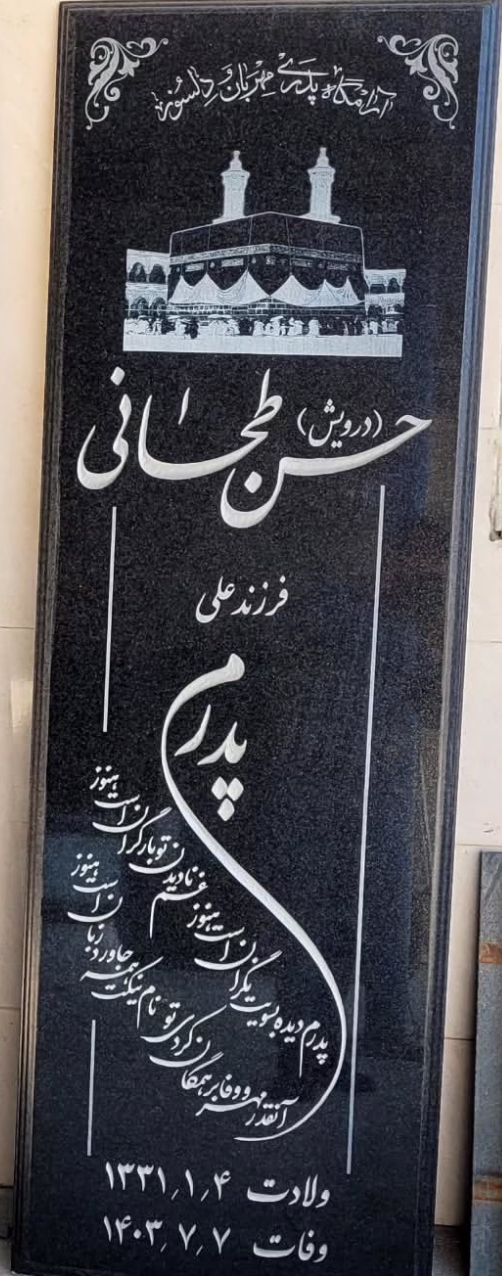 آرامگاه پدری مهربان و دلسوز
حسن (درویش) طحانی
فرزند علی
پدرم
پدرم دیده بسویت نگران است هنوز
غم نادیدن تو بار گران است هنوز
آنقدر مهر و وفا بر همگان کردی تو
نام نیکت همه جا ورد زبان است هنوز
ولادت ۱۳۳۱٫۱٫۴
وفات ۱۴۰۳٫۷٫۷